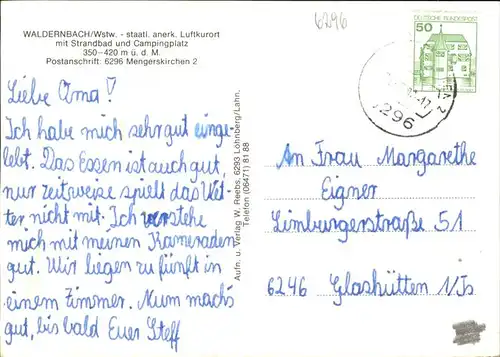 WALDERNBACH/Wstw. - staatl. anerk. Luftkurort
mit Strandbad und Campingplatz
350-420 m ü. d. M.
Postanschrift: 6296 Mengerskirchen 2
6296
50
DEUTSCHE BUNDESPOST
6296
Liebe Oma!
Ich habe mich sehr gut einge-
lebt. Das Essen ist auch gut,
nur zeitweise spielt das Wet-
ter nicht mit. Ich verstehe
mich mit meinen Kameraden
gut. Wir liegen zu fünft in
einem Zimmer. Nun mach's
gut, bis bald Euer Steff
Aufn. u. Verlag W. Reebs, 6293 Löhnberg/Lahn.
Telefon (06471) 81 88
An Frau Margarethe
Eigner
Limburgerstraße 51
6246 Glashütten 1/Ts